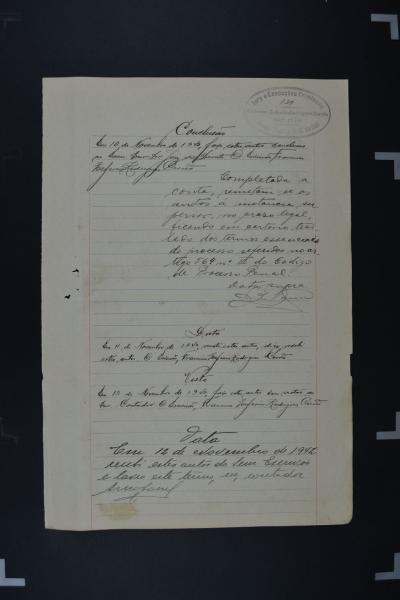 Jury e Execuções Criminaes
Conclusão
Em 10 de Novembro de 1942 faço estes autos conclusos
ao Exmo. Snr. Dr. Juiz O Escrivão
Completada a
conta, remetam-se os
autos á instancia su-
perior, no prazo legal,
ficando em cartorio tras-
lado dos termos essenciaes
do processo referidos no ar-
tigo 564 nº do Codigo
de Processo Penal.
Data supra
Data
Em 11 de Novembro de 1942, recebi estes autos, digo, recebi
estes autos. O Escrivão, Rodrigues
Vista
Em 12 de Novembro de 1942 faço estes autos com vistas ao
Snr. Contador O Escrivão, Rodrigues
Data
Em 12 de Novembro de 1942
recebi estes autos do Senr. Escrivão
e lavro este termo, eu, contador